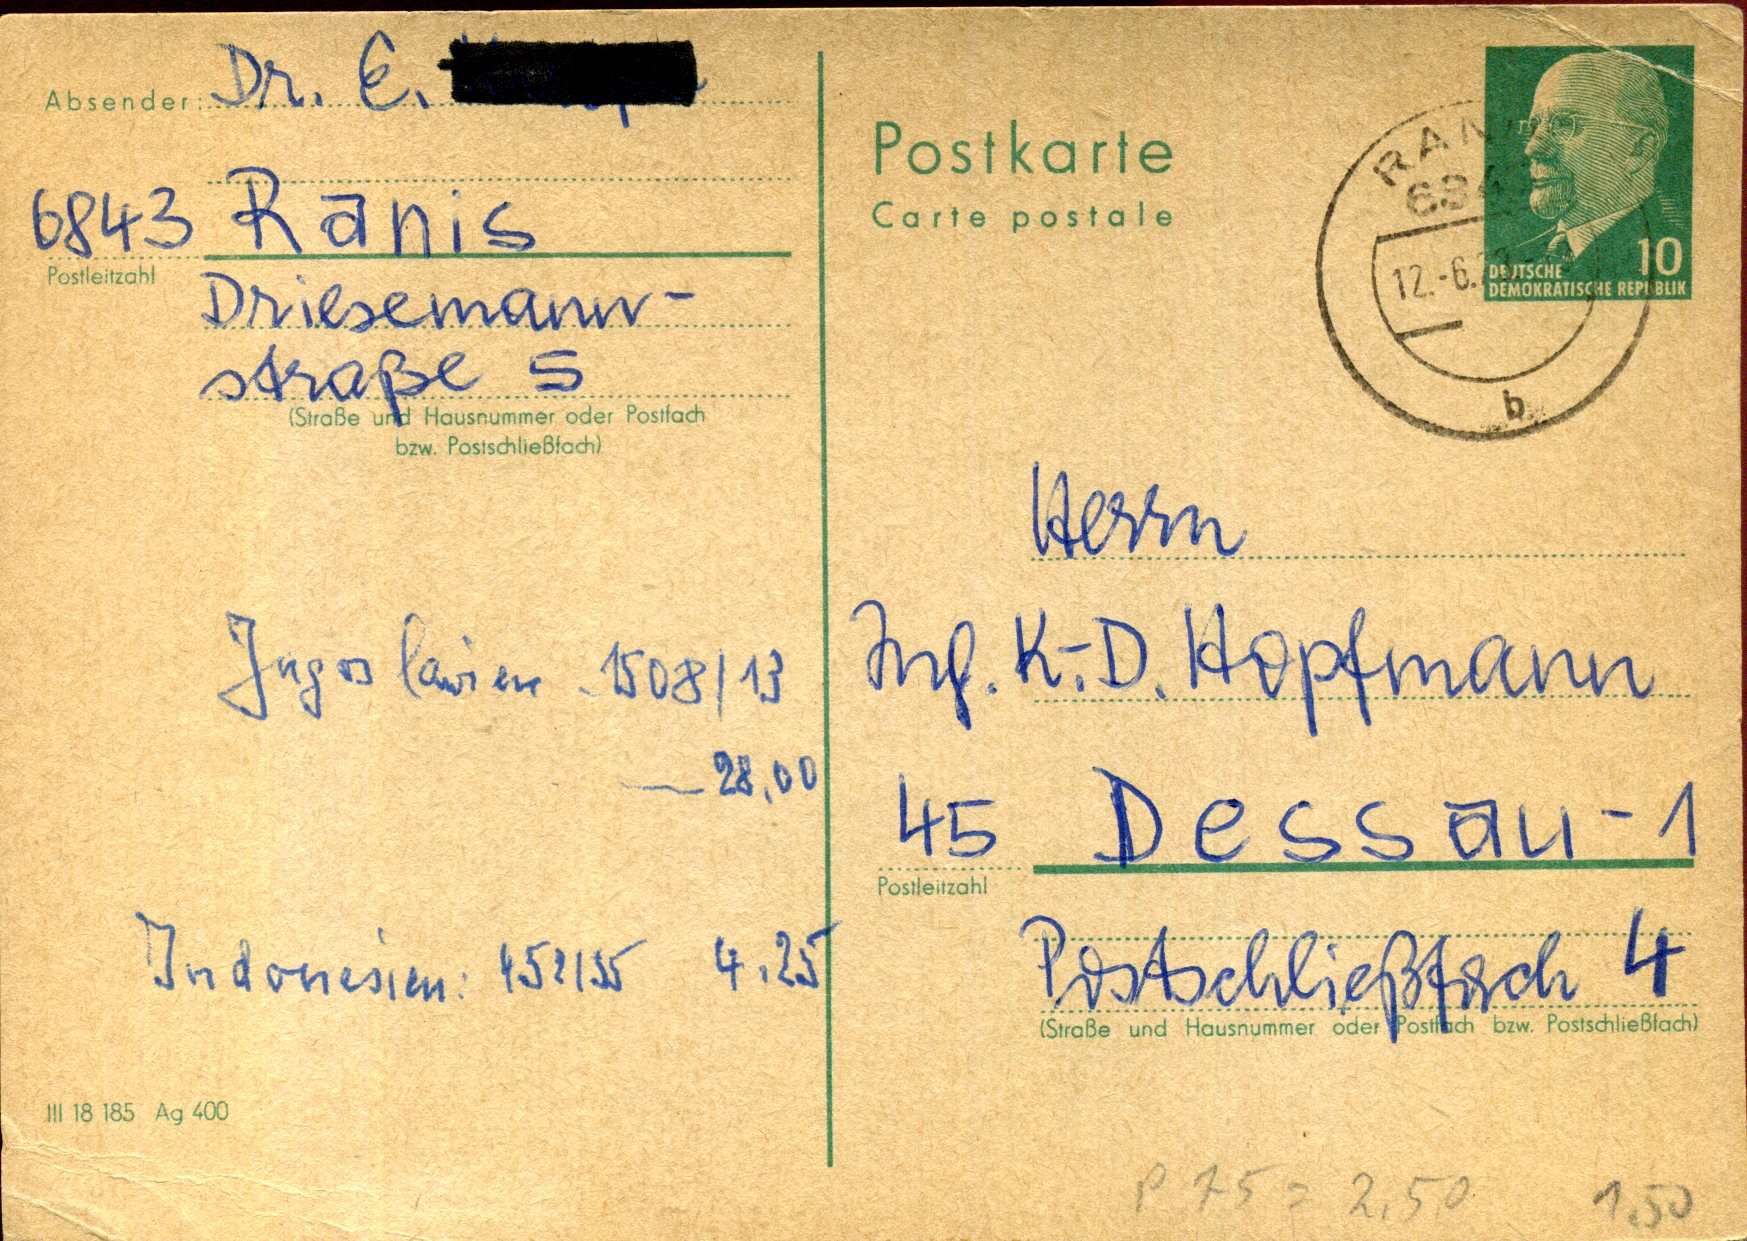 Absender: Dr. E.
6843 Ranis
Postleitzahl
Driesemann-
straße 5
(Straße und Hausnummer oder Postfach
bzw. Postschließfach)
Jugoslawien 1508/13
28,00
Indonesien: 152/55 4.25
III 18 185 Ag 400
Postkarte
Carte postale
12.-6.
b
10
DEUTSCHE
DEMOKRATISCHE REPUBLIK
Herrn
Ing. K.-D. Hopfmann
45 Dessau-1
Postleitzahl
Postschließfach 4
(Straße und Hausnummer oder Postfach bzw. Postschließfach)
P 75 = 2,50 1,50